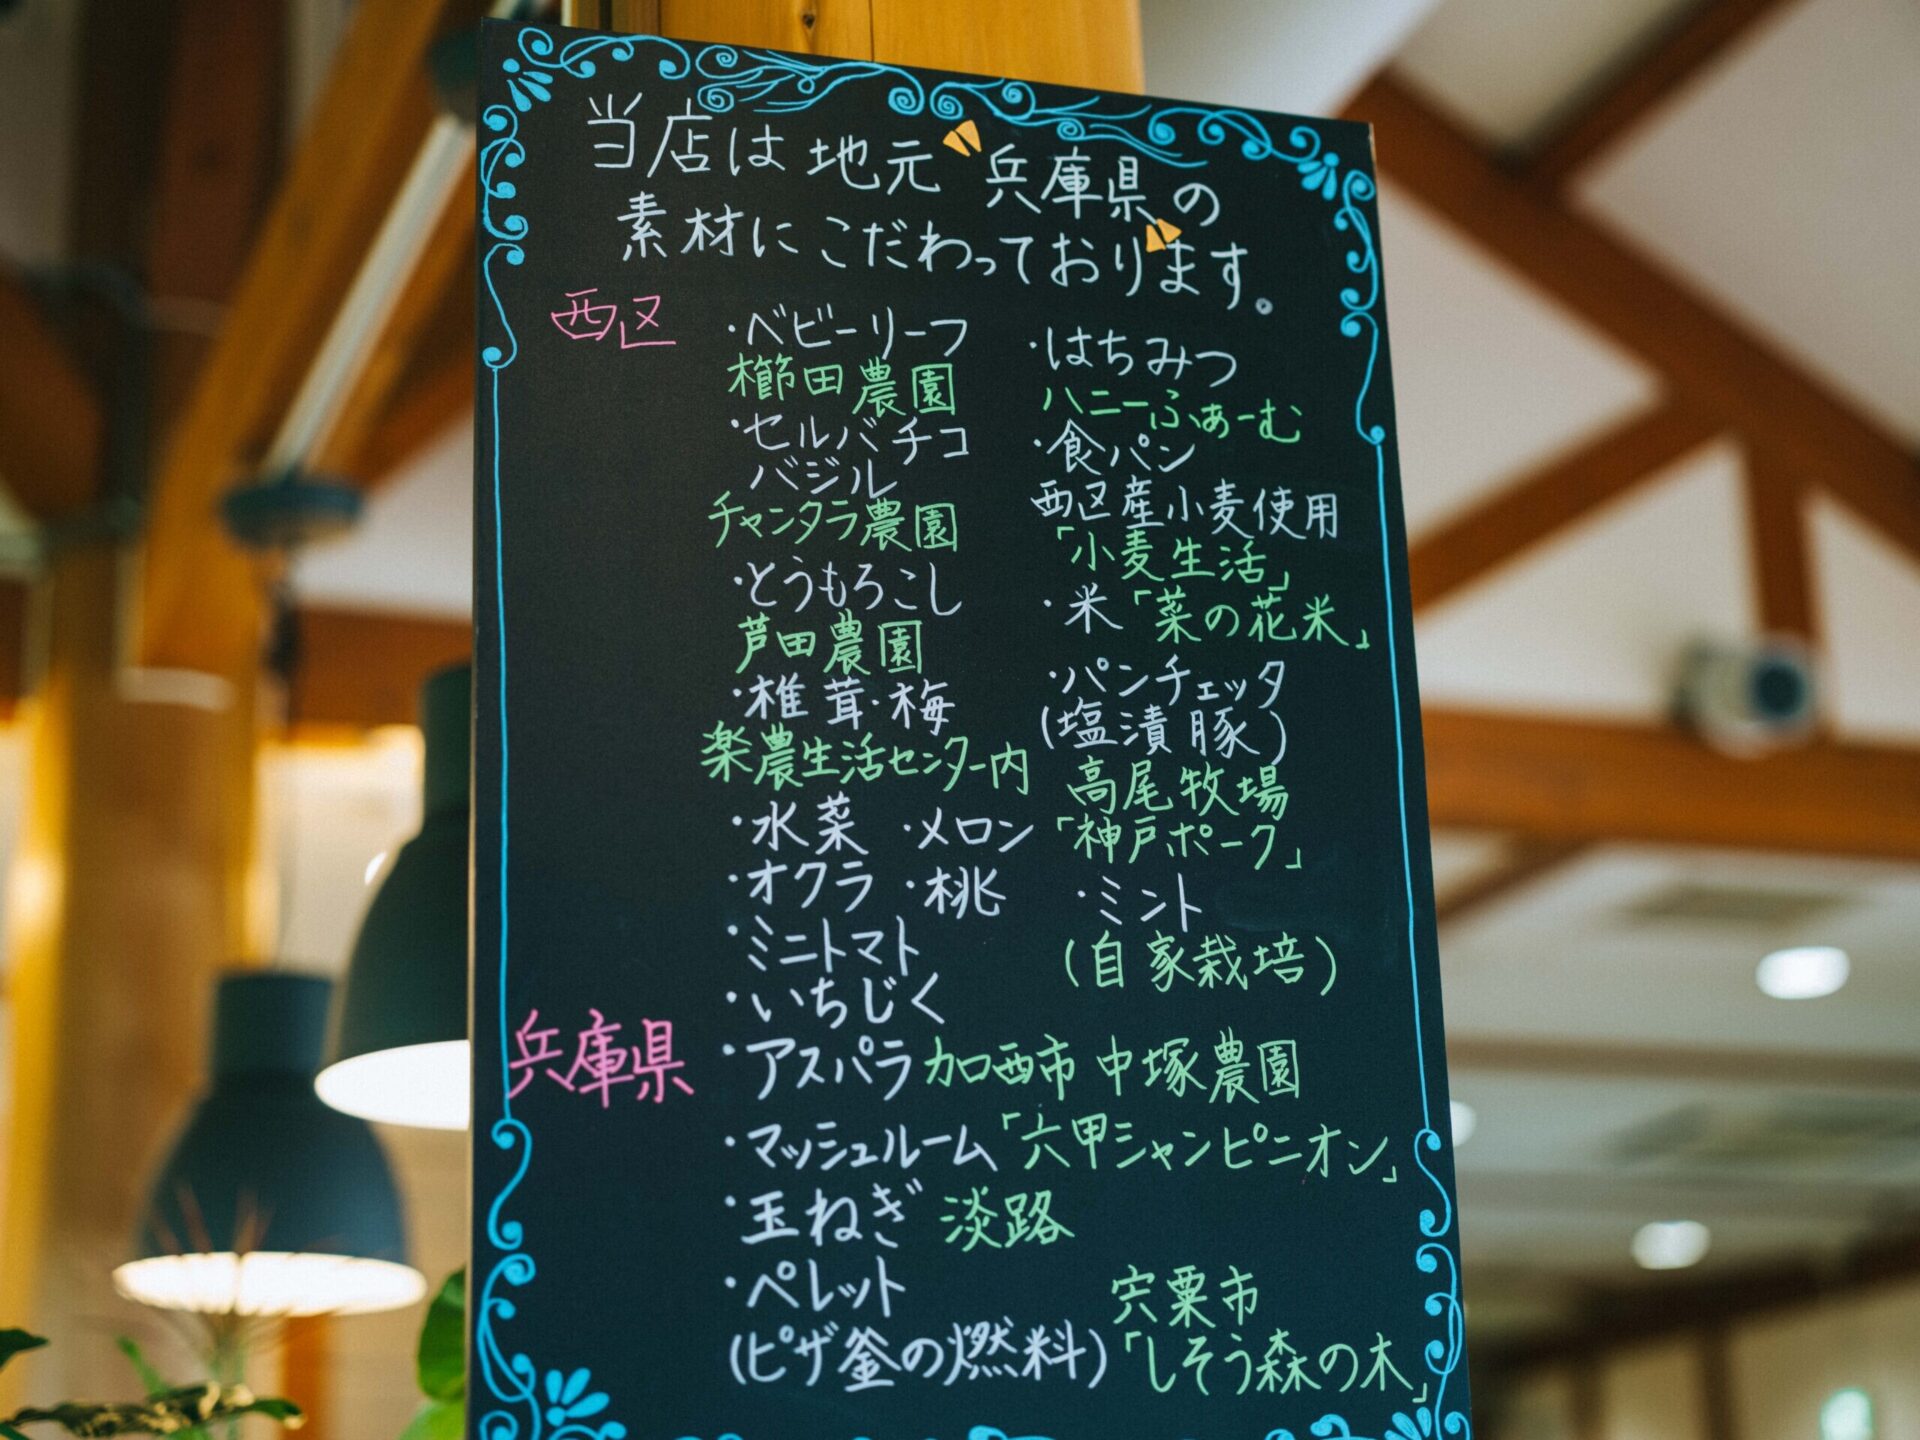 当店は地元兵庫県の
素材にこだわっております。
西区
・ベビーリーフ
櫛田農園
・セルバチコ
バジル
チャンタラ農園
・とうもろこし
芦田農園
・椎茸・梅
楽農生活センター内
・水菜 ・メロン
・オクラ ・桃
・ミニトマト
・いちじく
・はちみつ
ハニーふぁーむ
・食パン
西区産小麦使用
「小麦生活」
・米「菜の花米」
・パンチェッタ
(塩漬豚)
高尾牧場
「神戸ポーク」
・ミント
(自家栽培)
兵庫県
・アスパラ 加西市 中塚農園
・マッシュルーム「六甲シャンピニオン」
・玉ねぎ 淡路
・ペレット 宍粟市
(ピザ釜の燃料)「しそう森の木」